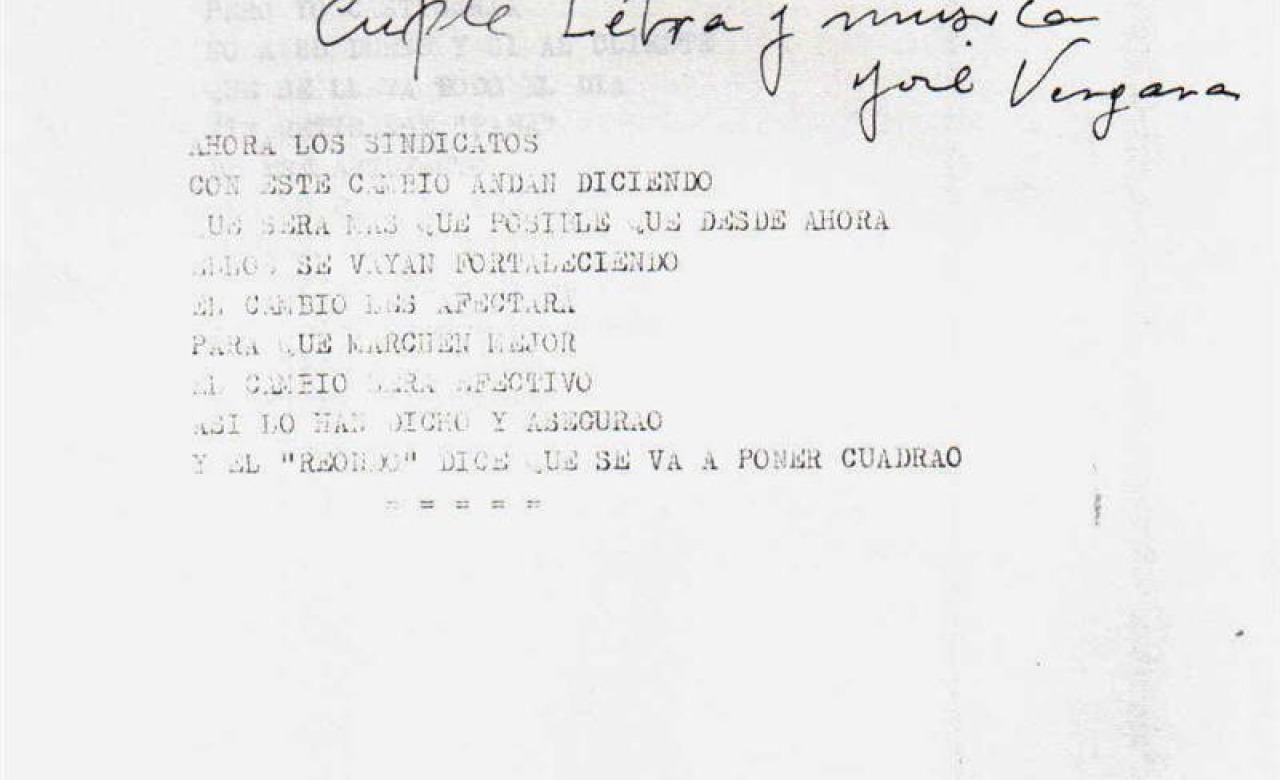 Cuple Letra y musica
José Vergara
AHORA LOS SINDICATOS
CON ESTE CAMBIO ANDAN DICIENDO
QUE SERA MAS QUE POSIBLE QUE DESDE AHORA
ELLOS SE VAYAN FORTALECIENDO
EL CAMBIO LES AFECTARA
PARA QUE MARCHEN MEJOR
EL CAMBIO SERA EFECTIVO
ASI LO HAN DICHO Y ASEGURAO
Y EL "REONDO" DICE QUE SE VA A PONER CUADRAO
= = = = =